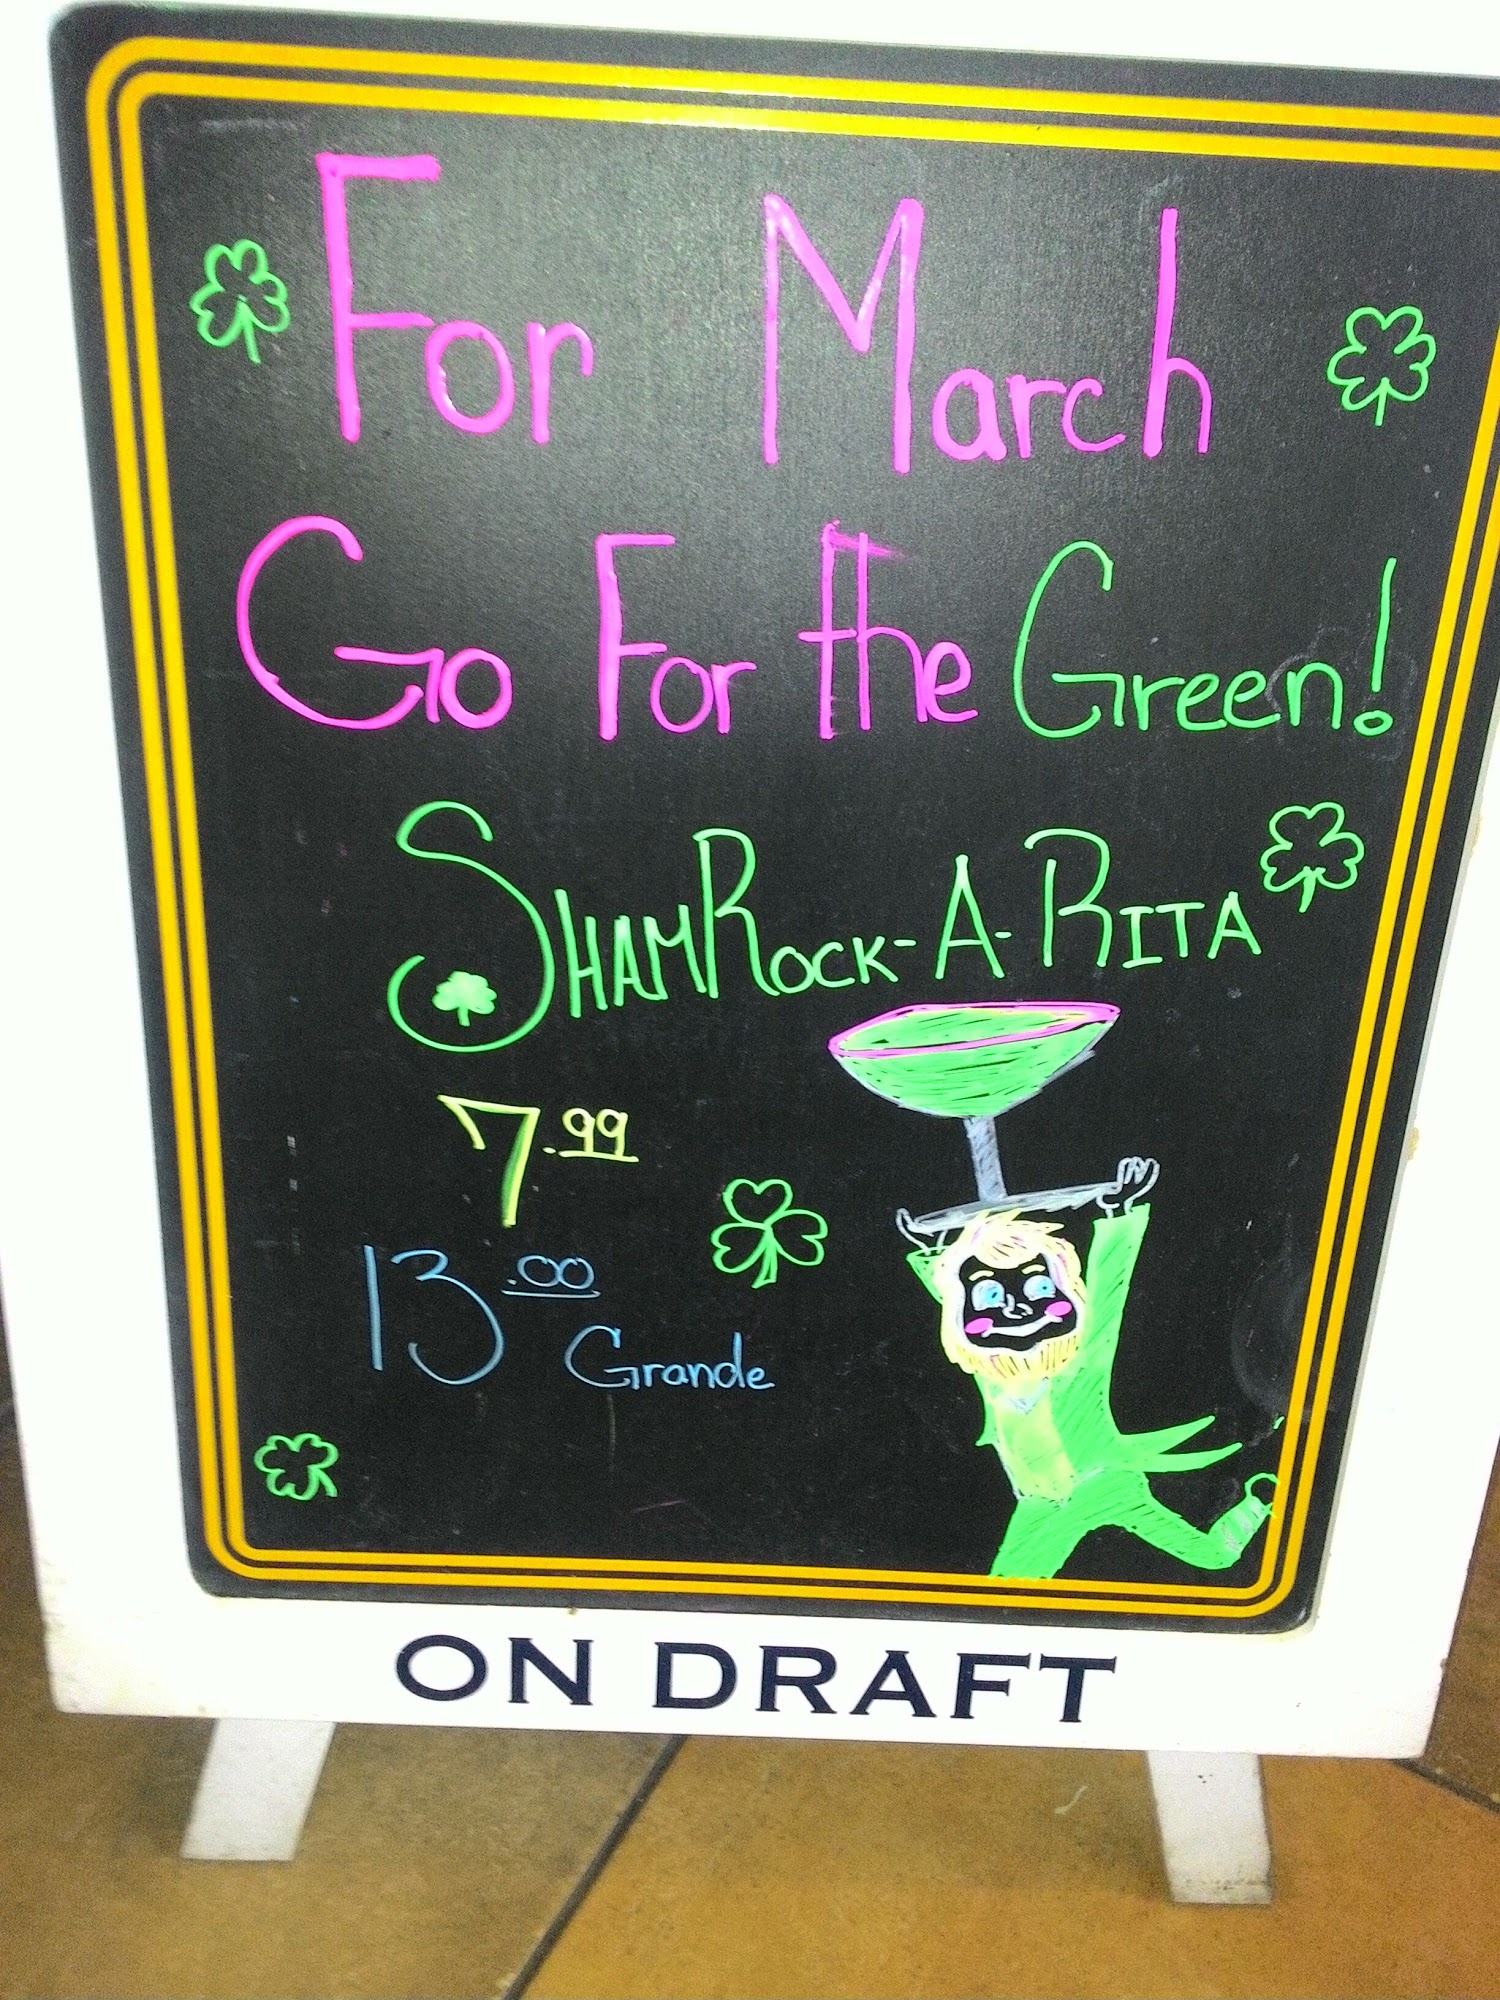 For March
Go For the Green!
ShamRock-A-Rita
7.99
13.00 Grande
ON DRAFT